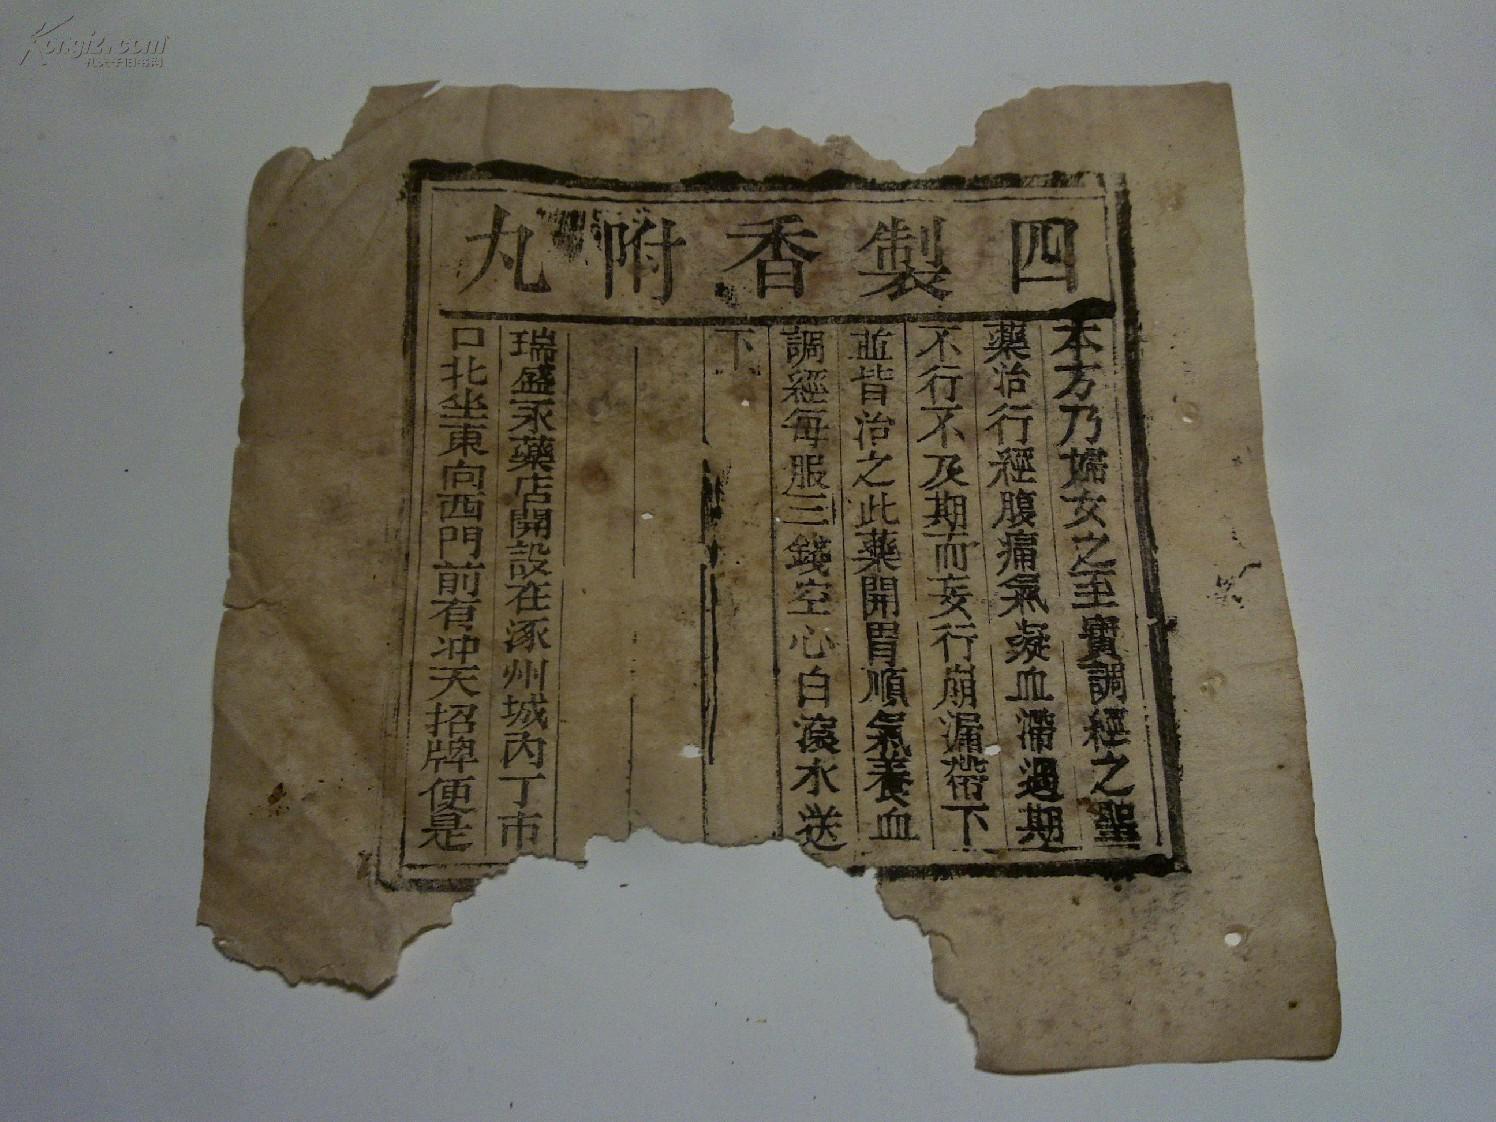 Kongfz.com
孔夫子旧书网
四製香附丸
本方乃婦女之至寶調經之聖
藥治行經腹痛氣凝血滯過期
不行不及期而妄行崩漏帶下
並皆治之此藥開胃順氣養血
調經每服三錢空心白滾水送
下
瑞盛永藥店開設在涿州城內丁市
口北坐東向西門前有冲天招牌便是